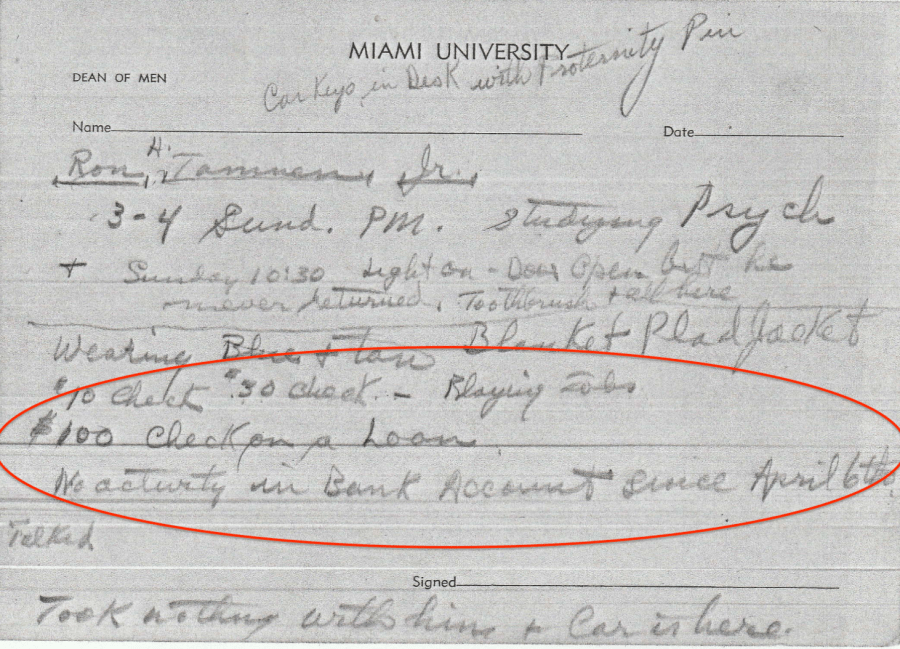 MIAMI UNIVERSITY
DEAN OF MEN
Car Keys in Desk with Fraternity Pin
Name Date
Ron H. Tammen, Jr.
3-4 Sund. PM. Studying Psych
+ Sunday 10:30 Light on - Door Open but he
never returned. Toothbrush + all here
Wearing Blue & tan Blanket Plad Jacket
$10 Check $30 check. - Playing Jobs
$100 Check on a Loan
No activity in Bank Account since April 6th.
Talked
Signed
Took nothing with him + Car is here.